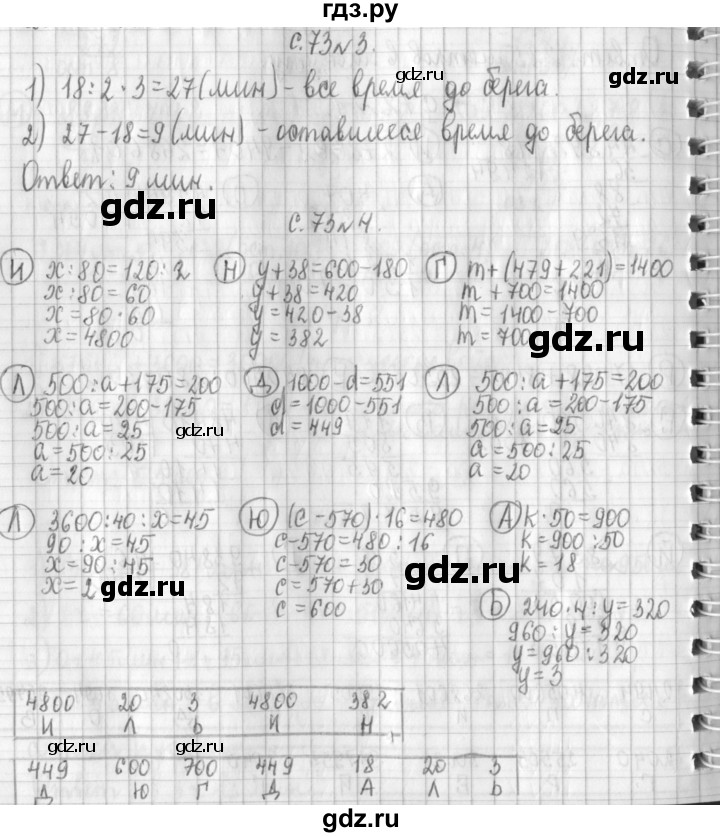 гдз.ру
с.73№3.
1) 18:2·3=27(мин)-все время до берега.
2) 27-18=9(мин) - оставшееся время до берега.
Ответ: 9 мин.
с.73№4.
И x:80=120:2
x:80=60
x=80·60
x=4800
Н y+38=600-180
y+38=420
y=420-38
y=382
Г m+(479+221)=1400
m+700=1400
m=1400-700
m=700
Л 500:a+175=200
500:a=200-175
500:a=25
a=500:25
a=20
Д 1000-d=551
d=1000-551
d=449
Л 500:a+175=200
500:a=200-175
500:a=25
a=500:25
a=20
Л 3600:40:x=45
90:x=45
x=90:45
x=2
Ю (c-570)·16=480
c-570=480:16
c-570=30
c=570+30
c=600
А k·50=900
k=900:50
k=18
Ь 240·4:y=320
960:y=320
y=960:320
y=3
4800 20 3 4800 382
И Л Ь И Н
449 600 700 449 18 20 3
Д Ю Г Д А Л Ь
gdz.ru
gdz.ru
gdz.ru
gdz.ru
gdz.ru
gdz.ru
gdz.ru
gdz.ru
gdz.ru
gdz.ru
gdz.ru